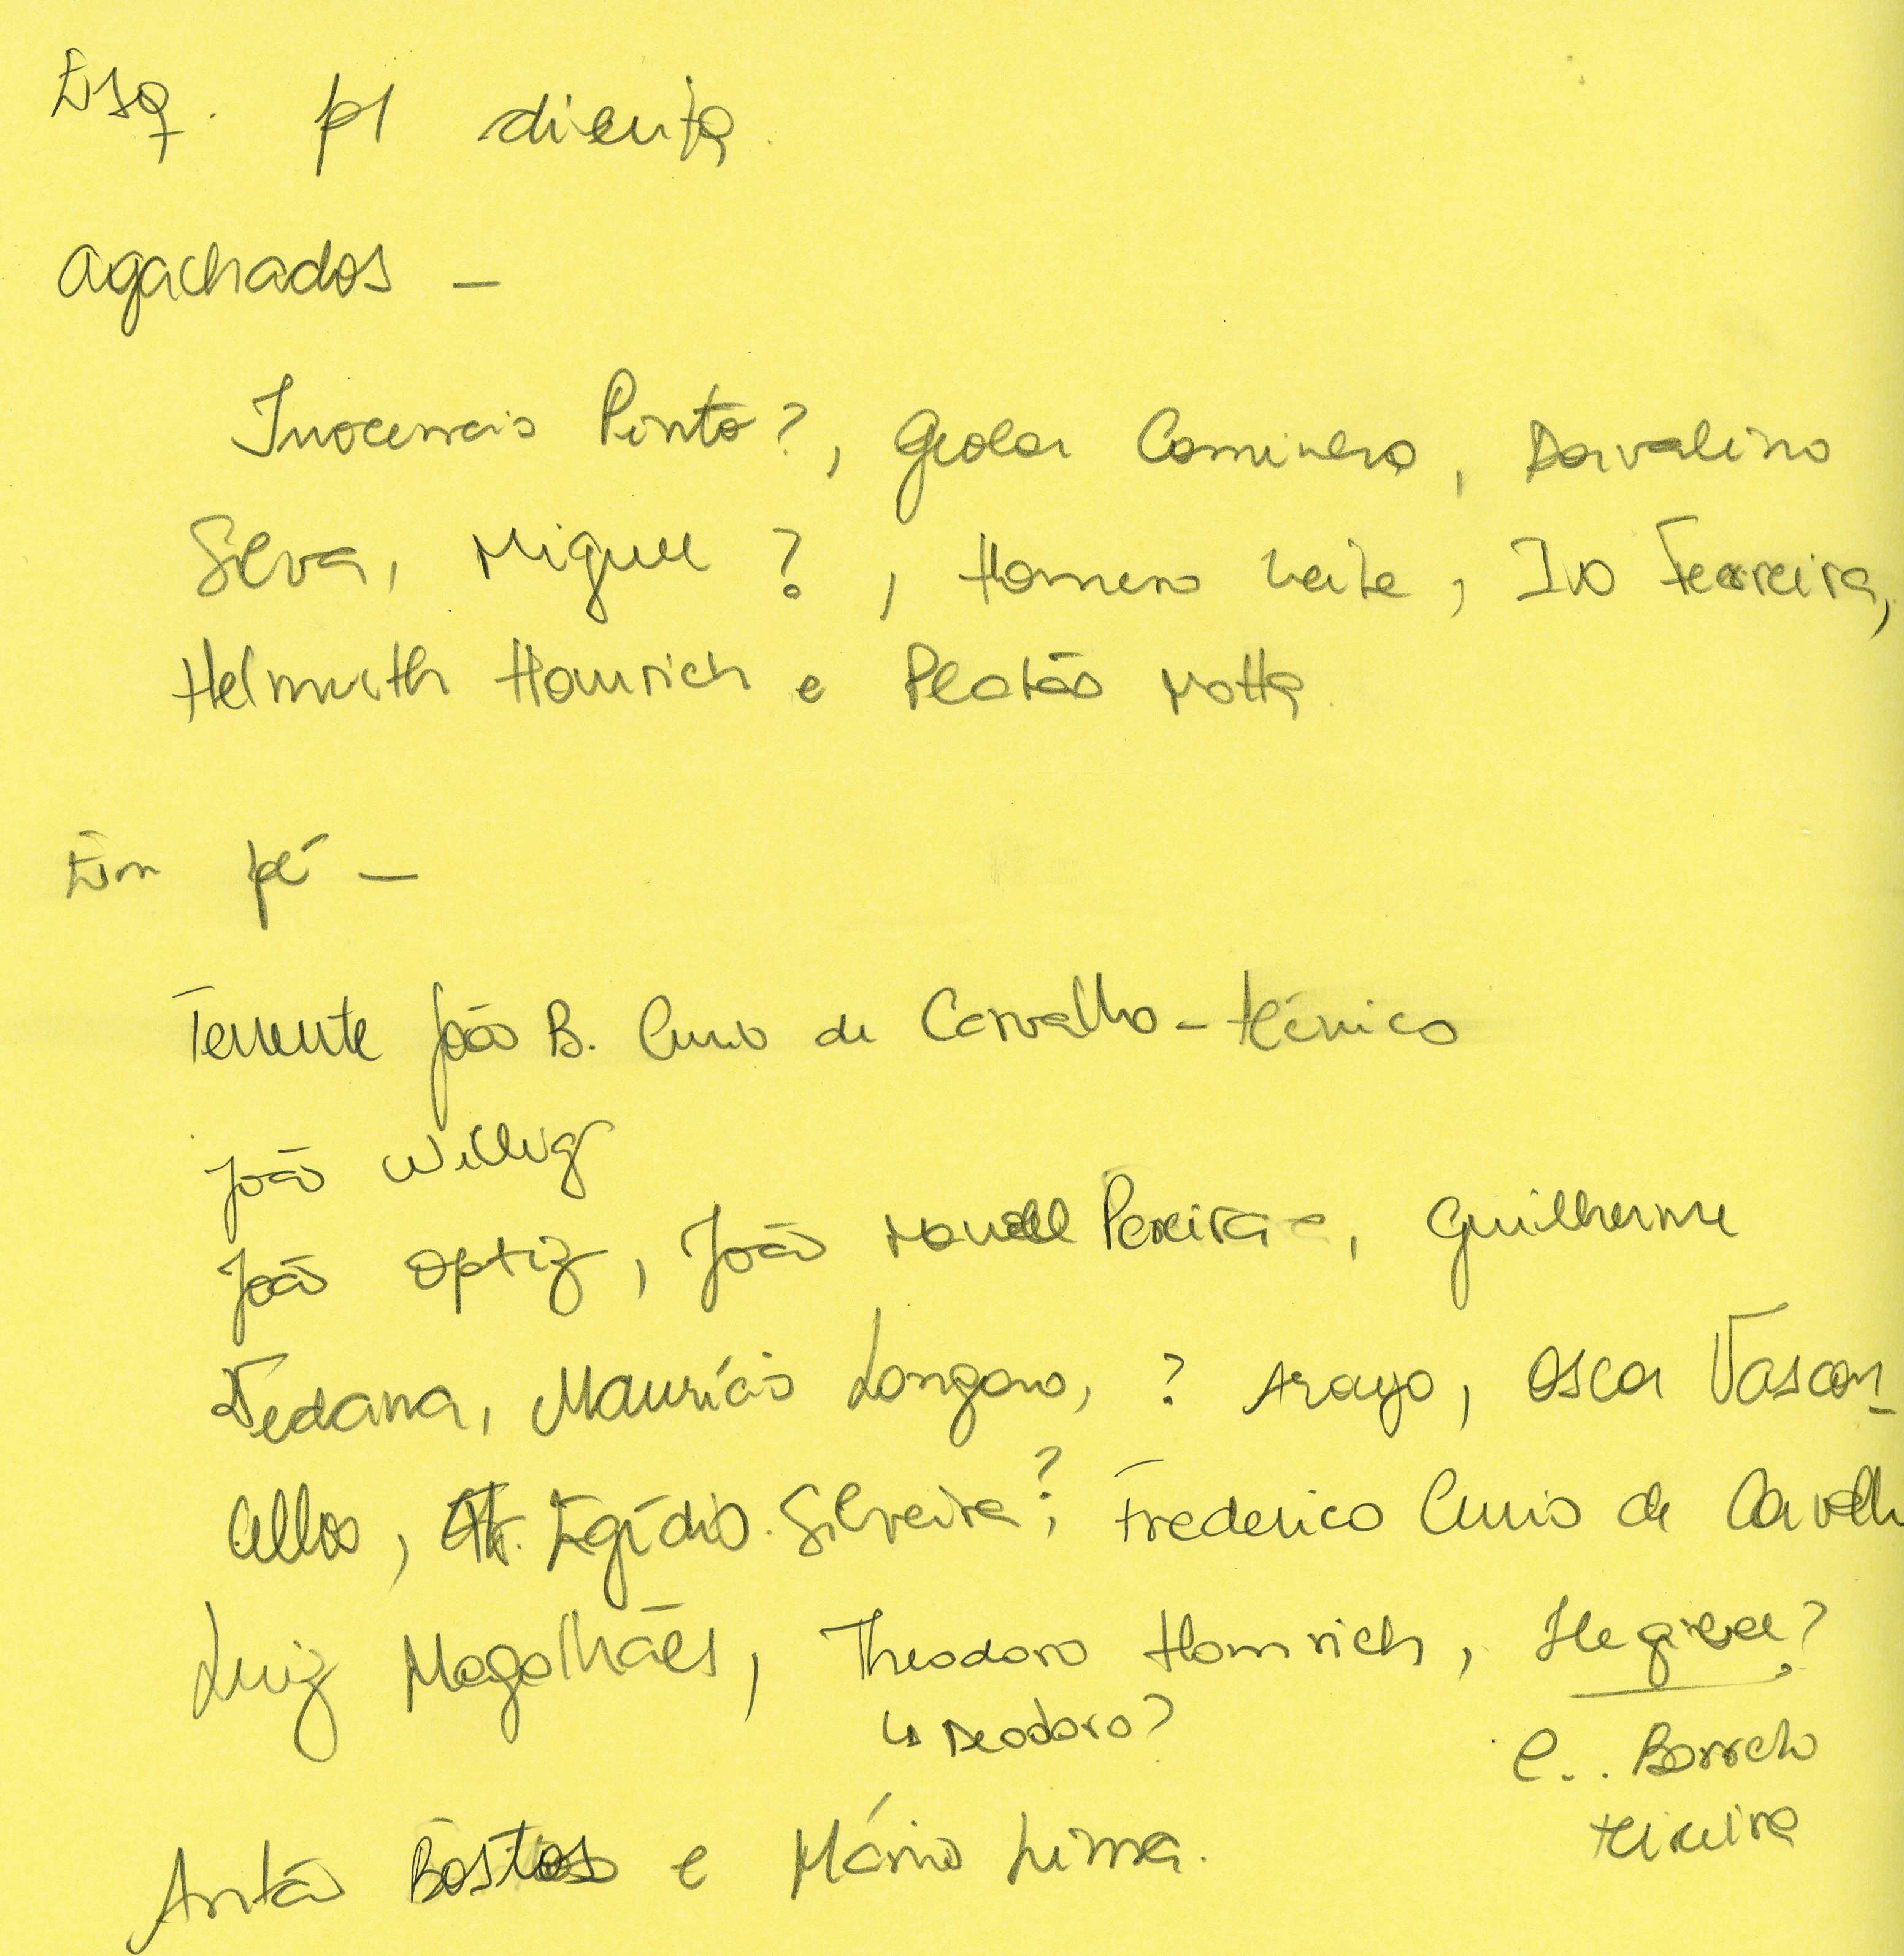 Esq. p/ direita.
agachados –
Inocencio Pinto?, Geolar Caminha, Dorvalino
Silva, Miguel ?, Homero Leite, Ivo Ferreira,
Helmuth Homrich e Platão Motta.
Em pé –
Tenente João B. Curio de Carvalho – técnico
João Willig
João Optiz, João Manoel Pereira, Guilherme
Vedana, Maurício Longaro, ? Arayo, Oscar Vascon-
cellos, Egídio Silveira?, Frederico Curio de Carvalh
Luiz Magalhães, Theodoro Homrich, ?
↳ Deodoro?
C.. Barreto
teixeira
Antão Bastos e Mário Lima.